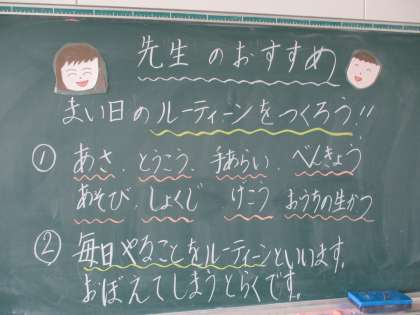 先生のおすすめ
まい日のルーティーンをつくろう!!
① あさ、とうこう、手あらい、べんきょう
あそび、しょくじ げこう おうちの生かつ
② 毎日やることをルーティーンといいます。
おぼえてしまうとらくです。